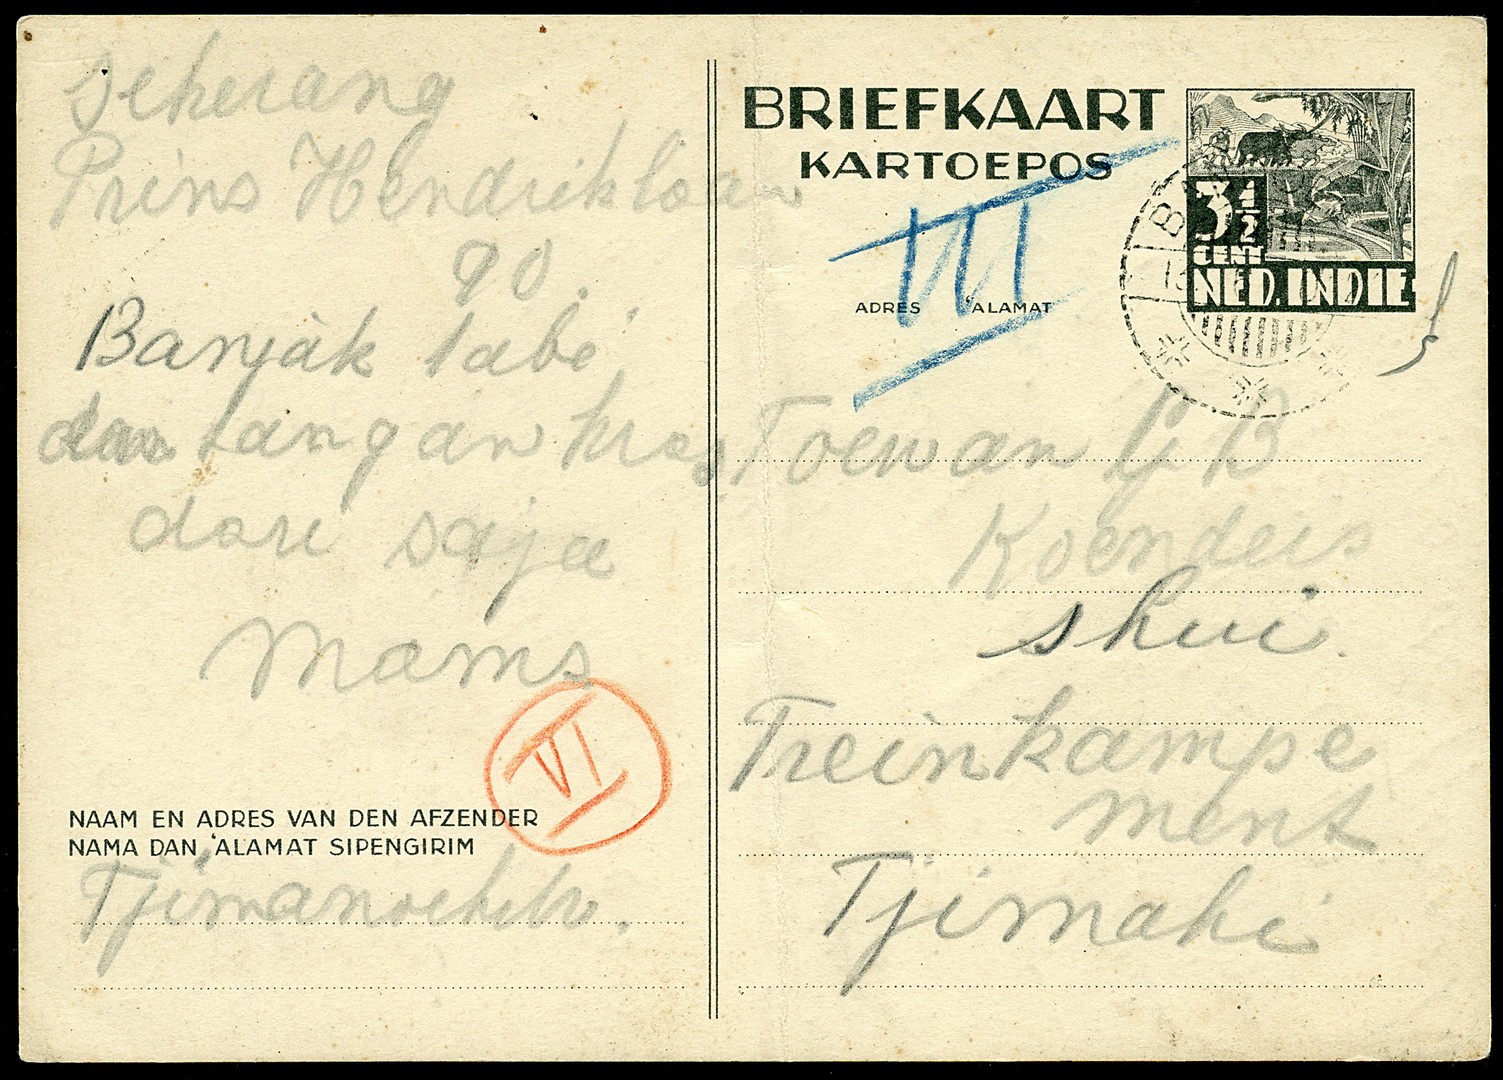 sekerang
Prins Hendriklaan
90.
Banjak tabé
dan tangan kras
dari saja
Mams
VI
NAAM EN ADRES VAN DEN AFZENDER
NAMA DAN 'ALAMAT SIPENGIRIM
BRIEFKAART
KARTOEPOS
3½
CENT
NED. INDIE
VI
ADRES 'ALAMAT
Toewan G B
Koendeis
shui.
Treinkampe
ment
Tjimahi